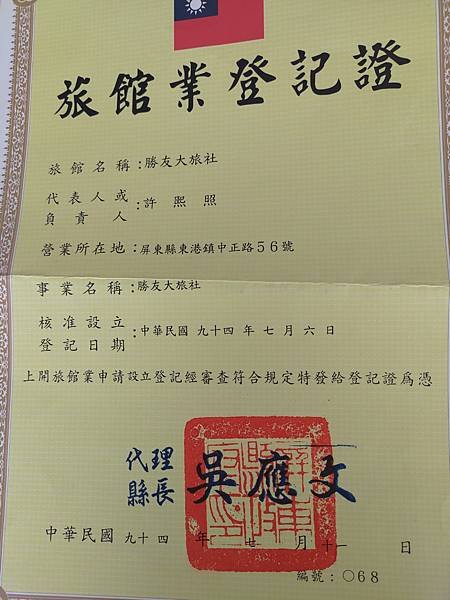 旅館業登記證
旅館名稱：勝友大旅社
代表人或
負責人：許熙照
營業所在地：屏東縣東港鎮中正路56號
事業名稱：勝友大旅社
核准設立
登記日期：中華民國 九十四 年 七 月 六 日
上開旅館業申請設立登記經審查符合規定特發給登記證為憑
代理
縣長 吳應文
中華民國 九十四 年 七 月 十一 日
編號：○68